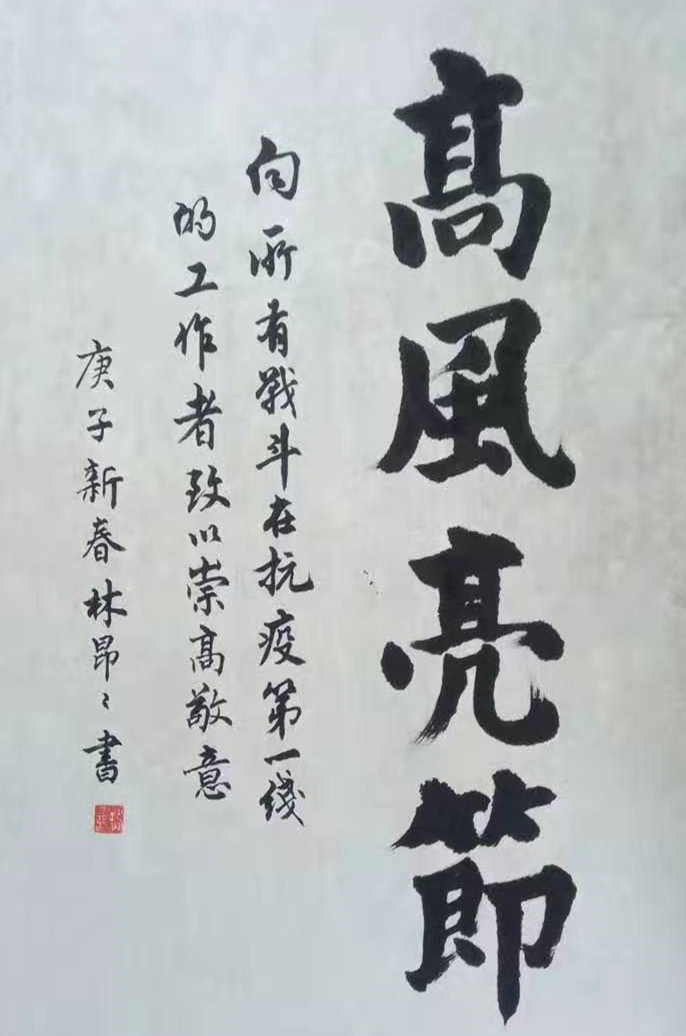 高風亮節
向所有戰斗在抗疫第一线
的工作者致以崇高敬意
庚子新春林昂〻書